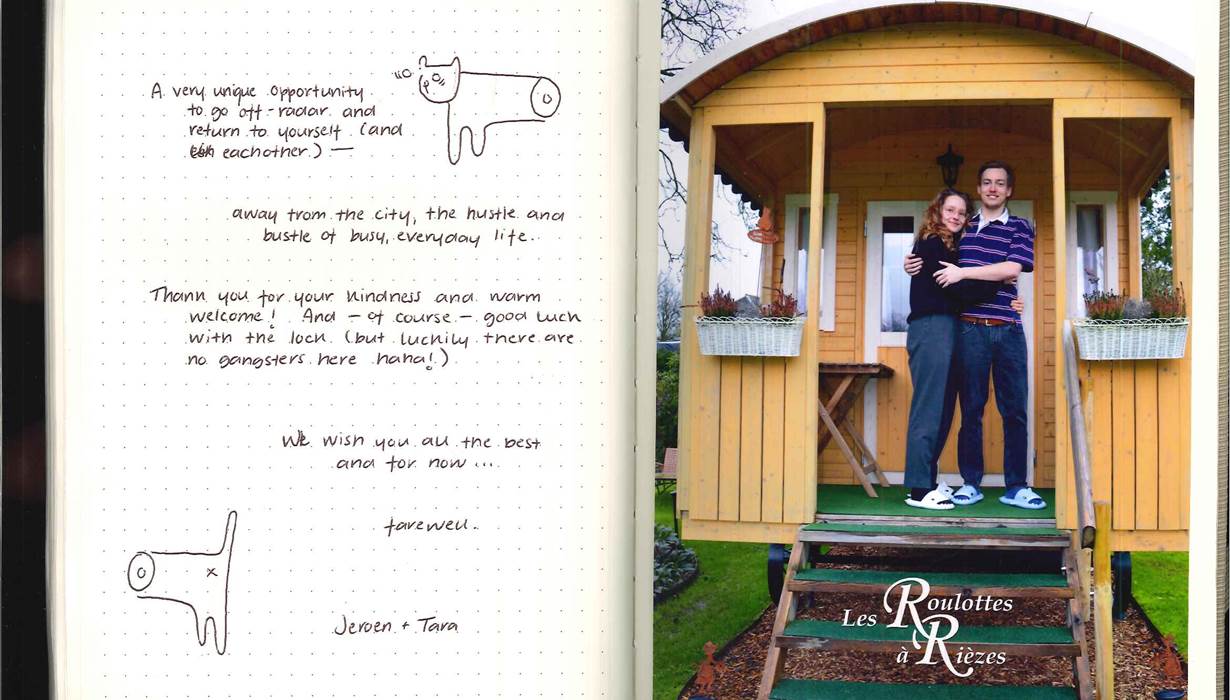 A very unique opportunity
to go off-radar and
return to yourself (and
eachother.) —
away from the city, the hustle and
bustle of busy, everyday life..
Thank you for your kindness and warm
welcome! And – of course – good luck
with the lock. (but luckily there are
no gangsters here haha!)
We wish you all the best
and for now ...
farewell.
Jeroen + Tara
Les Roulottes
à Rièzes